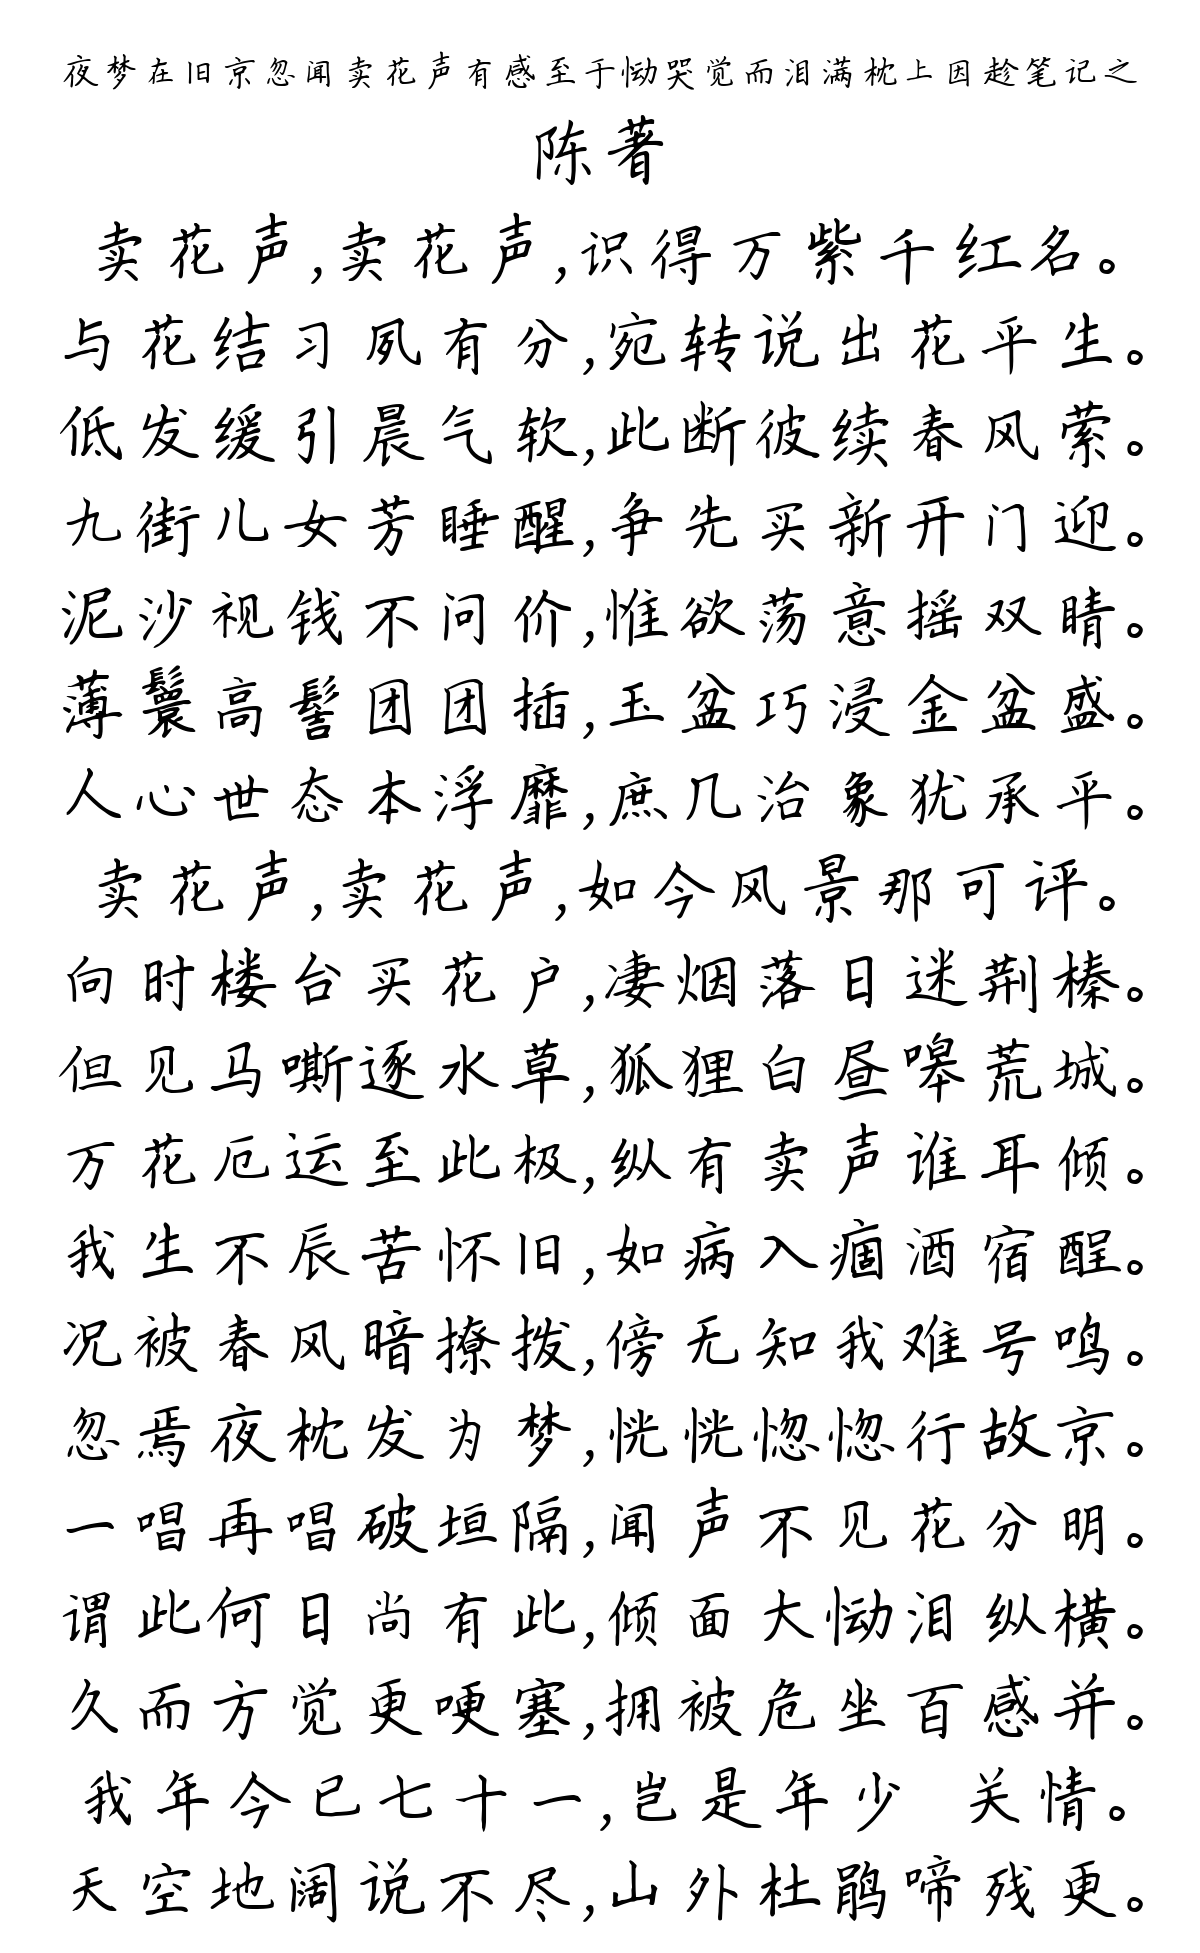 夜梦在旧京忽闻卖花声有感至于恸哭觉而泪满枕上因趁笔记之
陈著
卖花声,卖花声,识得万紫千红名。
与花结习夙有分,宛转说出花平生。
低发缓引晨气软,此断彼续春风萦。
九街儿女芳睡醒,争先买新开门迎。
泥沙视钱不问价,惟欲荡意摇双睛。
薄鬟高髻团团插,玉盆巧浸金盆盛。
人心世态本浮靡,庶几治象犹承平。
卖花声,卖花声,如今风景那可评。
向时楼台买花户,凄烟落日迷荆榛。
但见马嘶逐水草,狐狸白昼嗥荒城。
万花厄运至此极,纵有卖声谁耳倾。
我生不辰苦怀旧,如病入痼酒宿酲。
况被春风暗撩拨,傍无知我难号鸣。
忽焉夜枕发为梦,恍恍惚惚行故京。
一唱再唱破垣隔,闻声不见花分明。
谓此何日尚有此,倾面大恸泪纵横。
久而方觉更哽塞,拥被危坐百感并。
我年今已七十一,岂是年少 关情。
天空地阔说不尽,山外杜鹃啼残更。